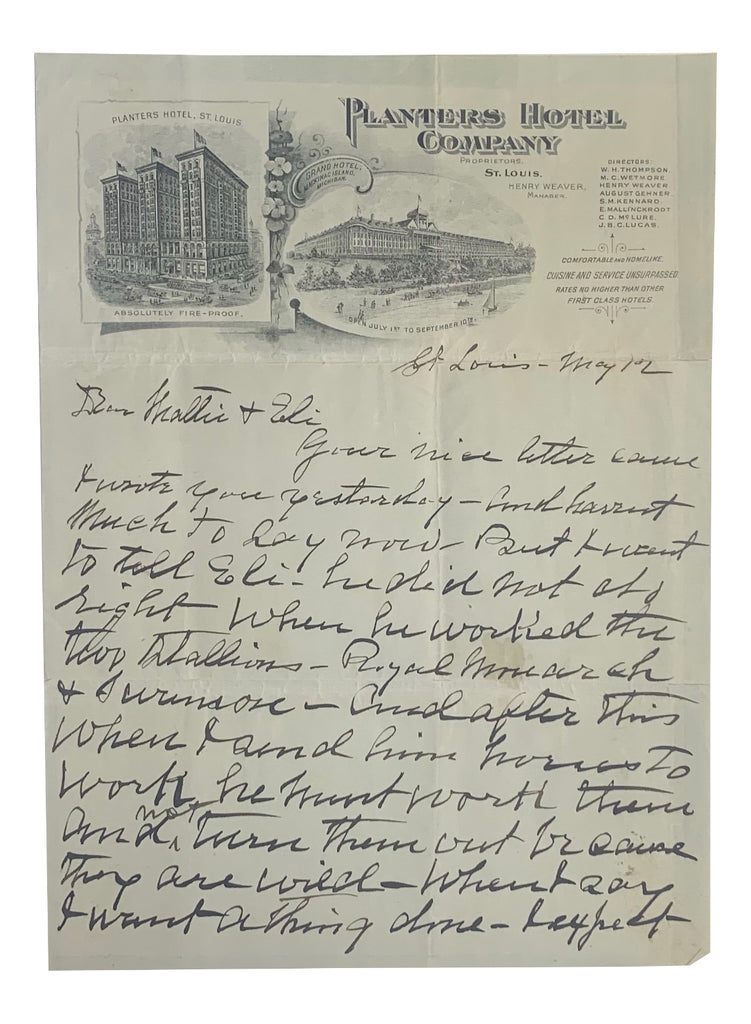 PLANTERS HOTEL, ST. LOUIS
ABSOLUTELY FIRE-PROOF.
GRAND HOTEL,
MACKINAC ISLAND,
MICHIGAN.
OPEN JULY 1ST TO SEPTEMBER 10TH.
PLANTERS HOTEL
COMPANY
PROPRIETORS.
ST. LOUIS.
HENRY WEAVER,
MANAGER.
DIRECTORS:
W. H. THOMPSON.
M. C. WETMORE
HENRY WEAVER
AUGUST GEHNER
S. M. KENNARD.
E. MALLINCKRODT
C. D. McLURE.
J. B. C. LUCAS.
COMFORTABLE AND HOMELIKE.
CUISINE AND SERVICE UNSURPASSED
RATES NO HIGHER THAN OTHER
FIRST CLASS HOTELS.
St Louis - May 12
Dear Mattie & Eli
Your nice letter came
I wrote you yesterday - and havent
Much to say now - But I want
to tell Eli - he did not do
right When he worked the
two Stallions - Royal Monarch
& - and after this
When I send him horses to
work, he must work them
and not turn them out because
they are wild - When I say
I want a thing done - I expect